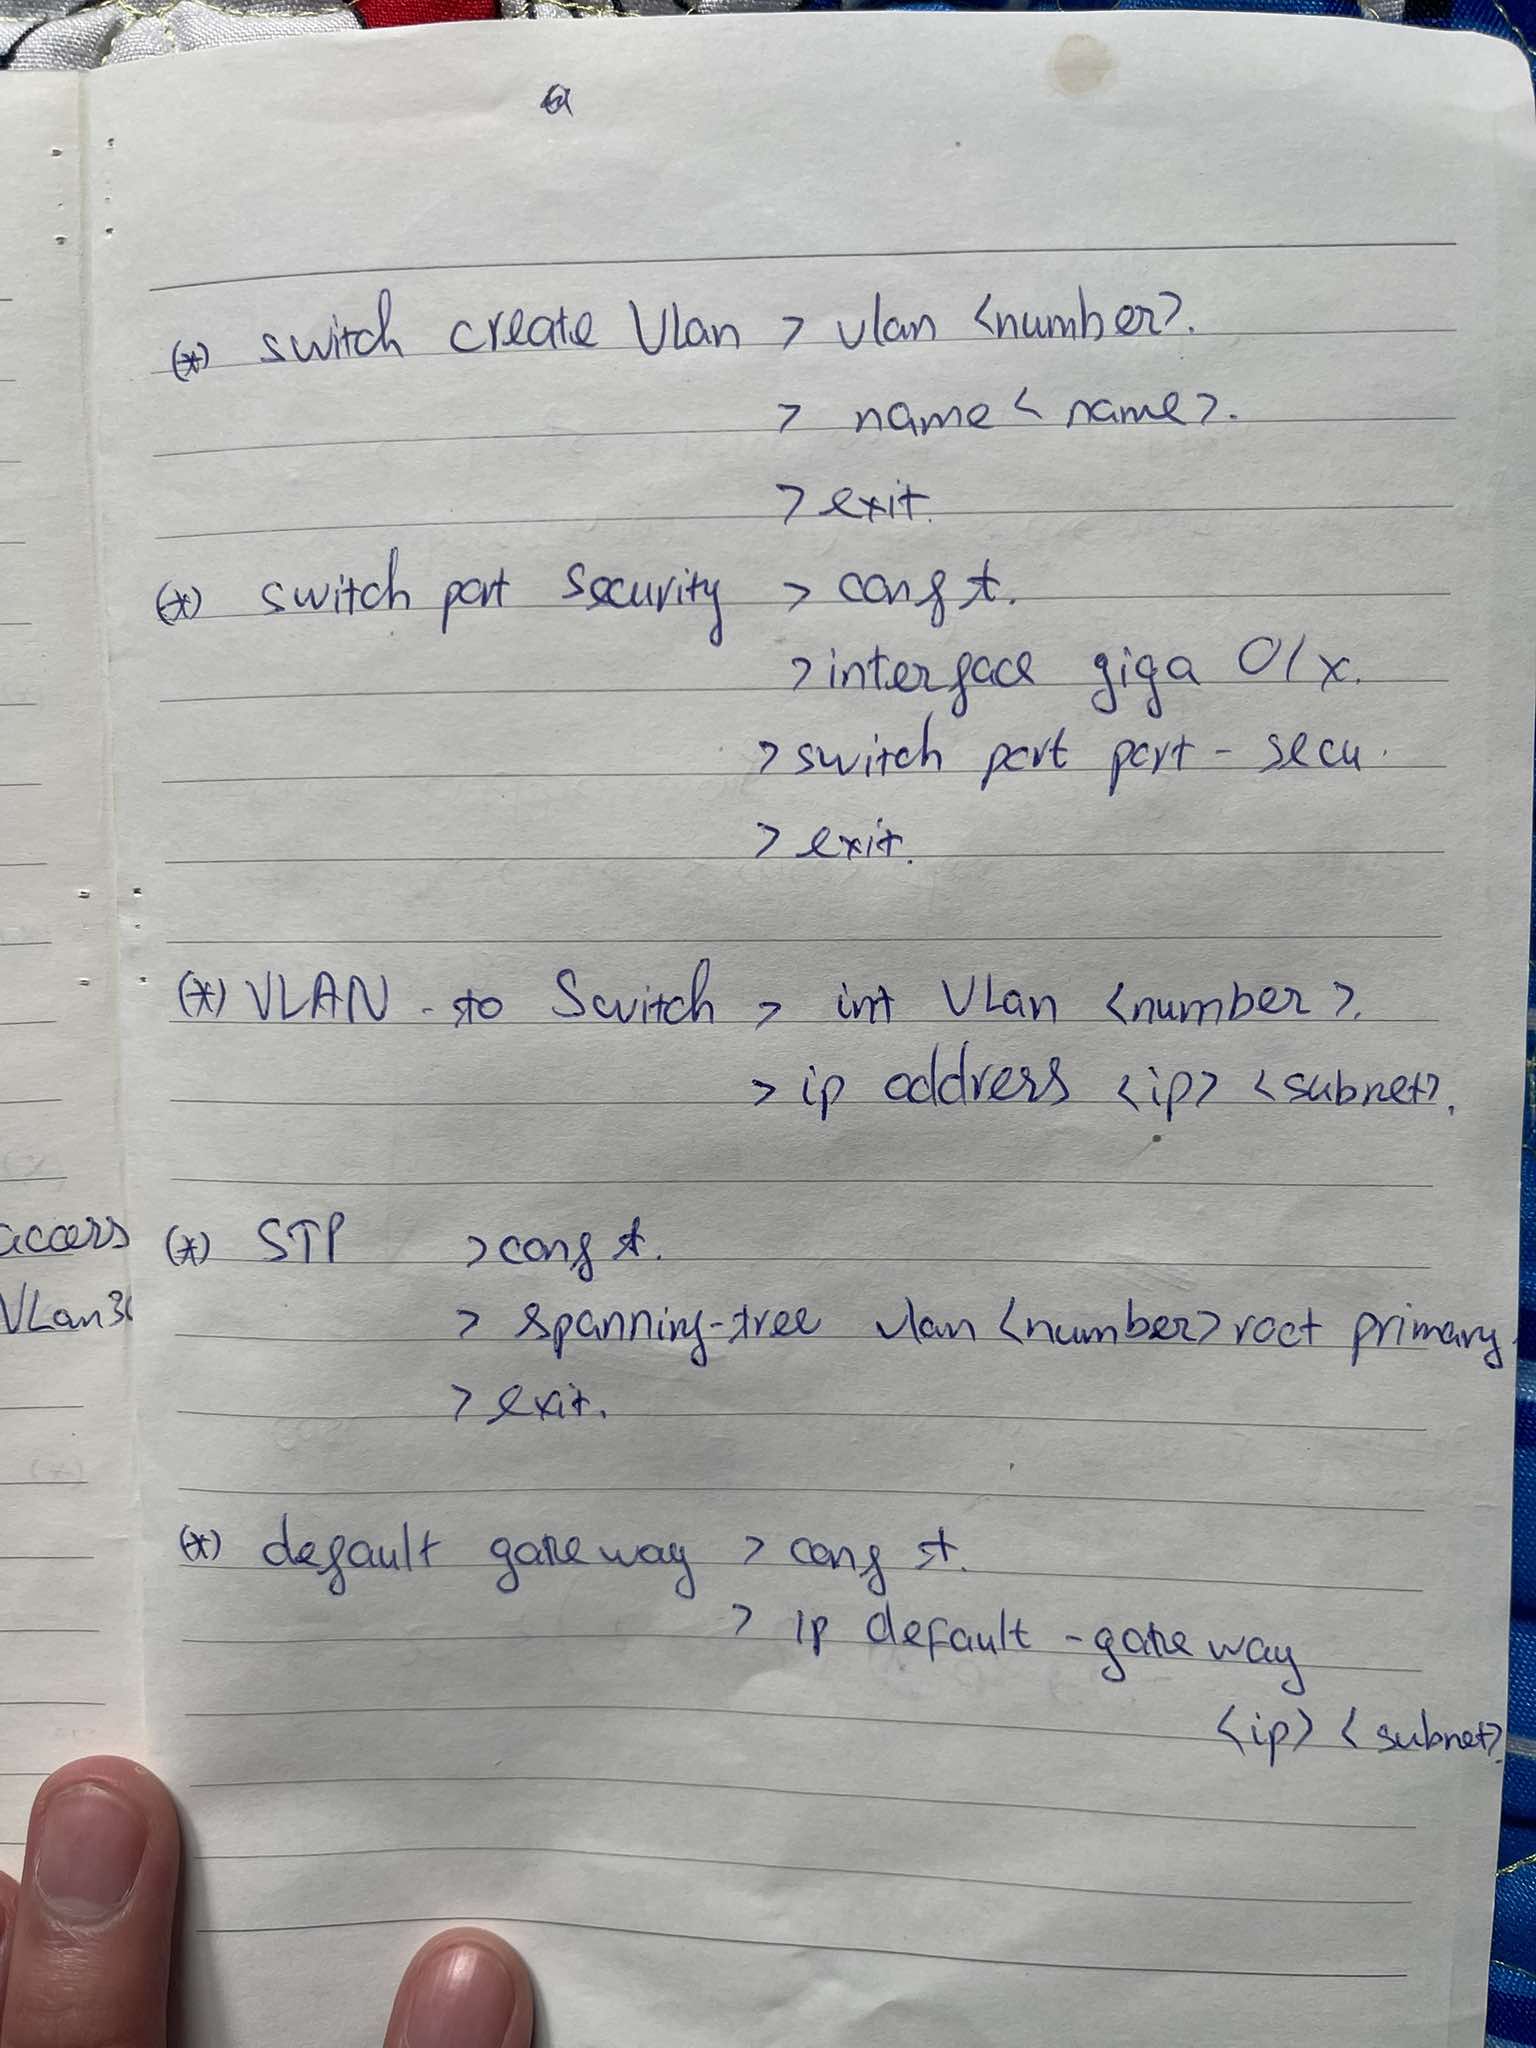 (*) switch create Vlan > vlan <number>.
> name < name >.
> exit.
(*) switch port security > conf t.
> interface giga 0/x.
> switch port port - secu.
> exit.
(*) VLAN - to Switch > int VLan <number>.
> ip address <ip> <subnet>.
access
(*) STP > conf t.
VLan30
> spanning-tree vlan <number> root primary.
> exit.
(*) default gateway > conf t.
> ip default - gateway
<ip> < subnet>.